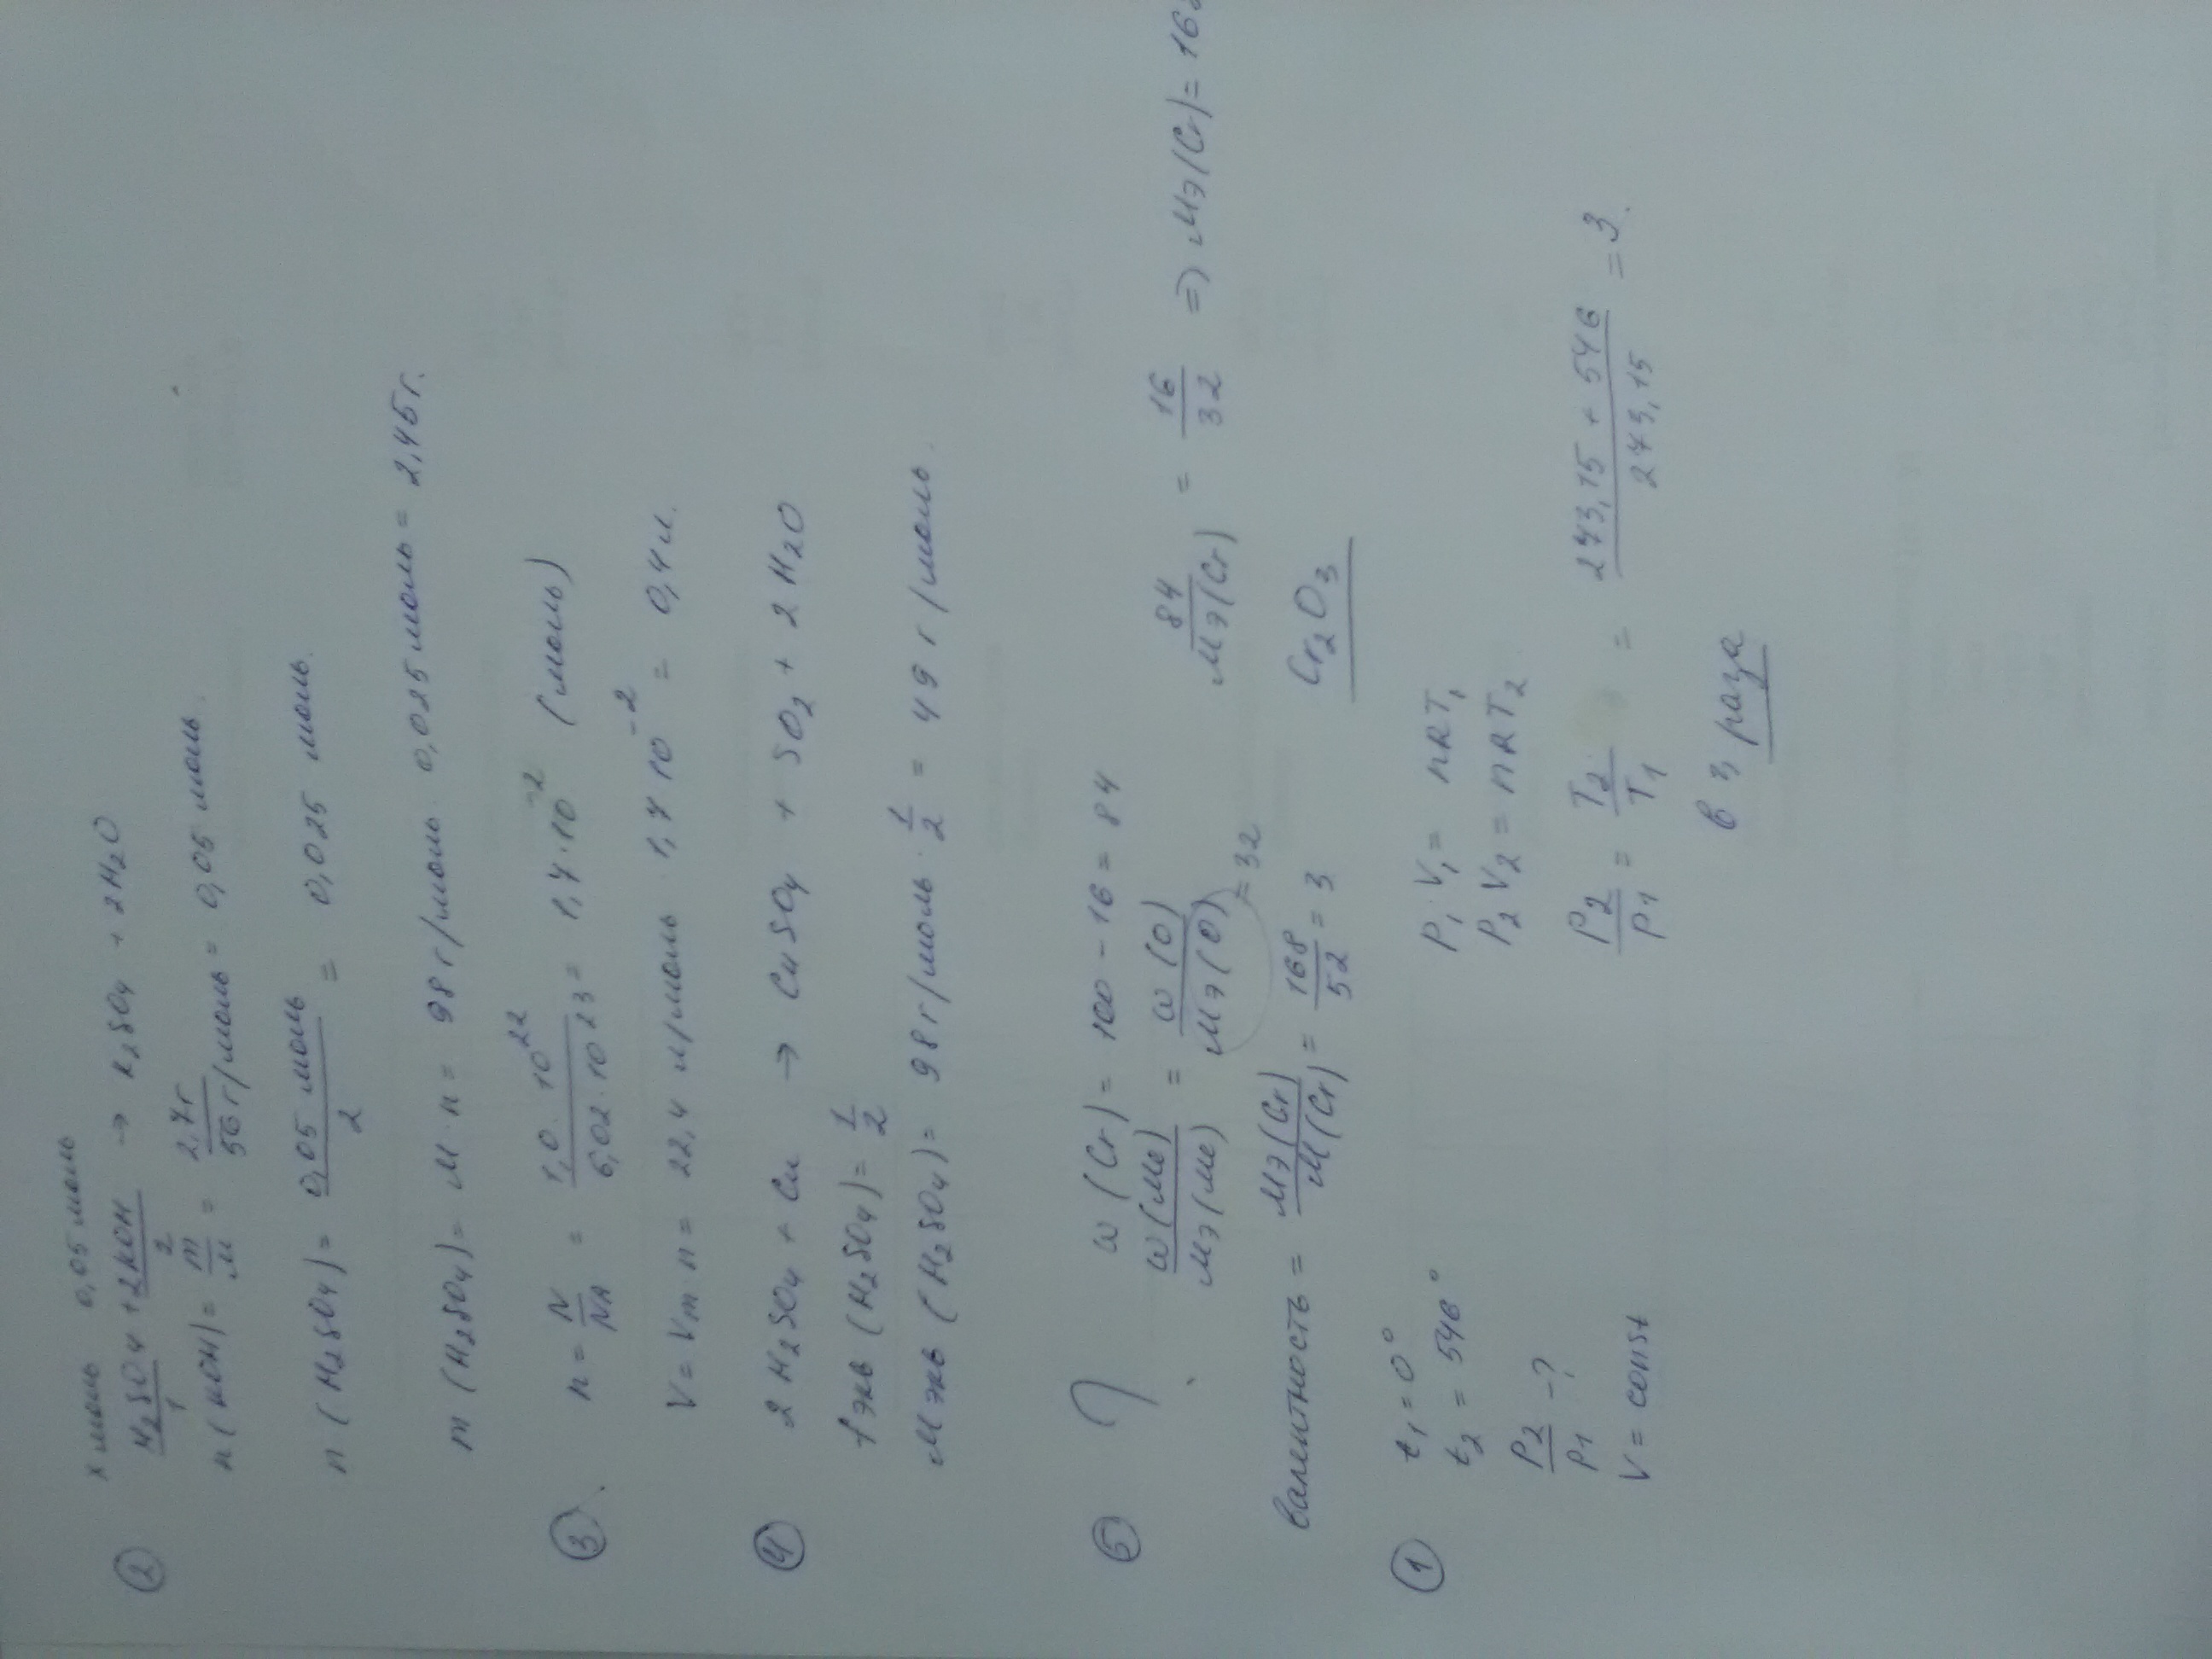 x моль 0,05 моль
② H2SO4 + 2KOH → K2SO4 + 2H2O
1 2
n(KOH) = m/M = 2,7г / 56 г/моль = 0,05 моль.
n(H2SO4) = 0,05 моль / 2 = 0,025 моль.
m(H2SO4) = M·n = 98 г/моль · 0,025 моль = 2,45 г.
③ n = N/NA = 1,0·10^22 / 6,02·10^23 = 1,7·10^-2 (моль)
V = Vm n = 22,4 л/моль · 1,7·10^-2 = 0,4 л.
④ 2H2SO4 + Cu → CuSO4 + SO2 + 2H2O
fэкв (H2SO4) = 1/2
Mэкв (H2SO4) = 98 г/моль · 1/2 = 49 г/моль.
⑤ ω(Cr) = 100 - 16 = 84
ω(Me) / Mэ(Me) = ω(O) / Mэ(O) = 32 84 / Mэ(Cr) = 16/32 => Mэ(Cr) = 168
валентность = Mэ(Cr) / M(Cr) = 168/52 = 3 Cr2O3
① t1 = 0° P1·V1 = nRT1
t2 = 546° P2V2 = nRT2
P2/P1 -? P2/P1 = T2/T1 = 273,15 + 546 / 273,15 = 3.
V = const в 3 раза